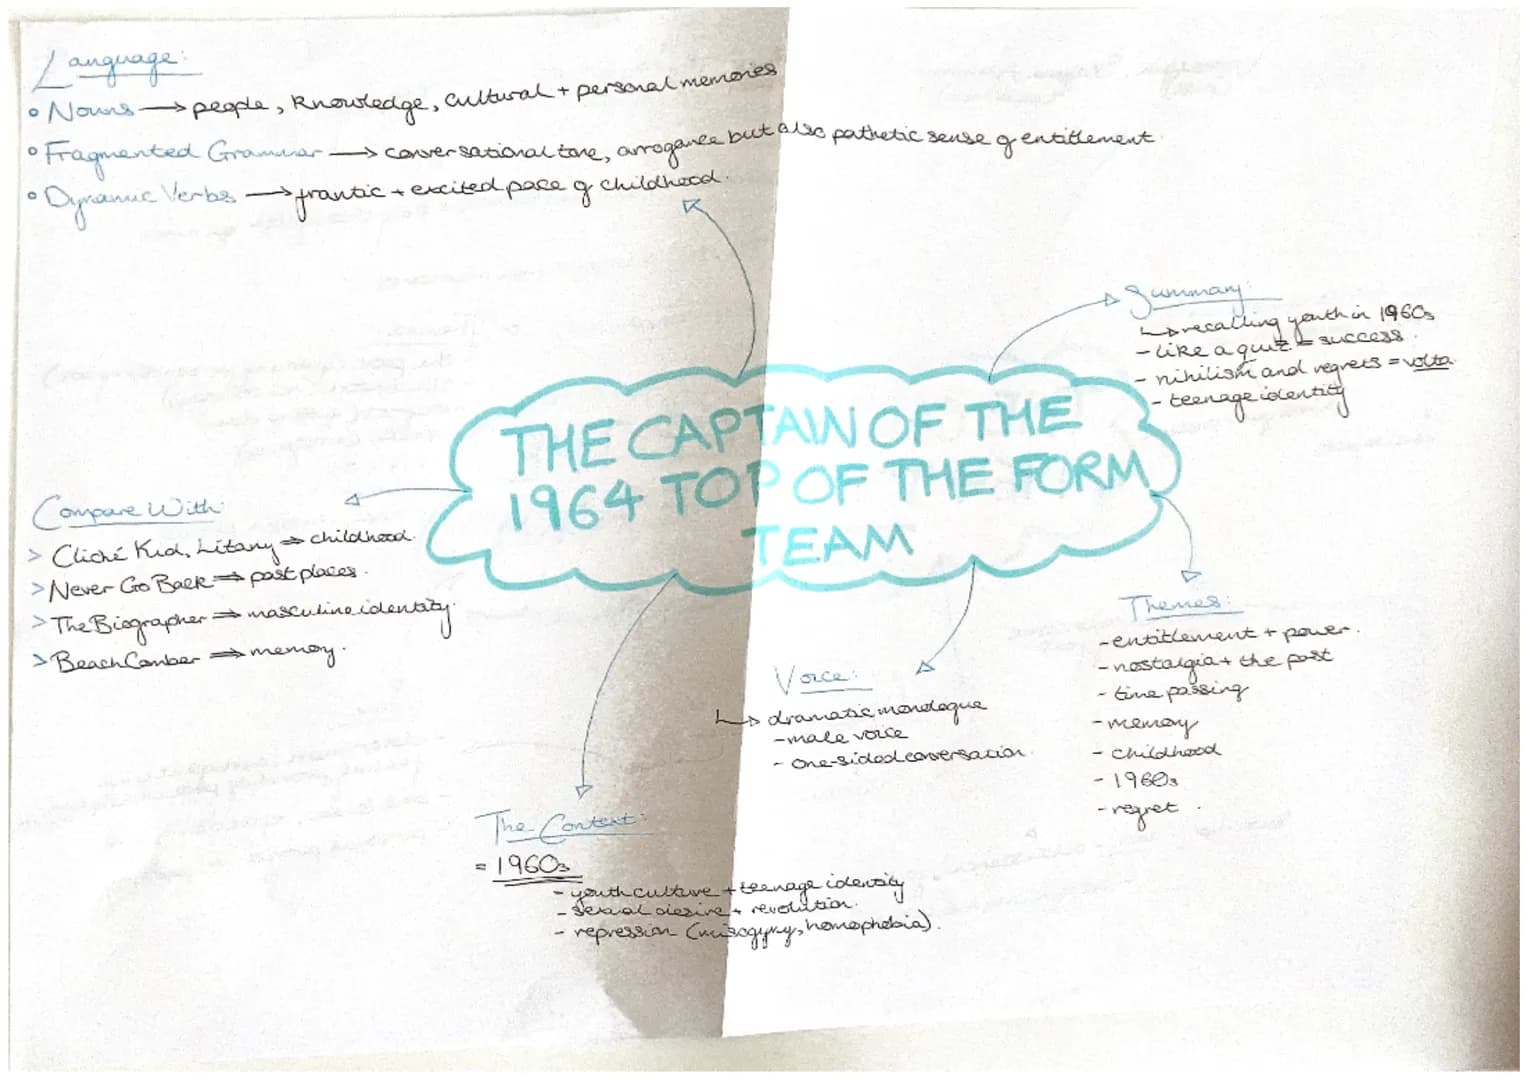 Language:
Nouns → people, knowledge, cultural + personal memories
Fragmented Grammar → conversational tone, arrogance but also pathetic sense of entitlement
Dynamic Verbs → frantic + excited pace of childhood.
Summary:
↳ recalling youth in 1960s
- like a quiz = success.
- nihilism and regrets = volta.
- teenage identity
THE CAPTAIN OF THE
1964 TOP OF THE FORM
TEAM
Compare With:
> Cliché Kid, Litany ⇒ childhood.
> Never Go Back ⇒ past places.
> The Biographer ⇒ masculine identity.
> BeachComber ⇒ memory.
Themes:
- entitlement + power.
- nostalgia + the past
- time passing
- memory
- childhood
- 1960s
- regret.
Voice:
↳ dramatic monologue
- male voice
- one-sided conversation.
The Context:
= 1960s
- youth culture + teenage identity
- sexual desire + revolution.
- repression (misogyny, homophobia).